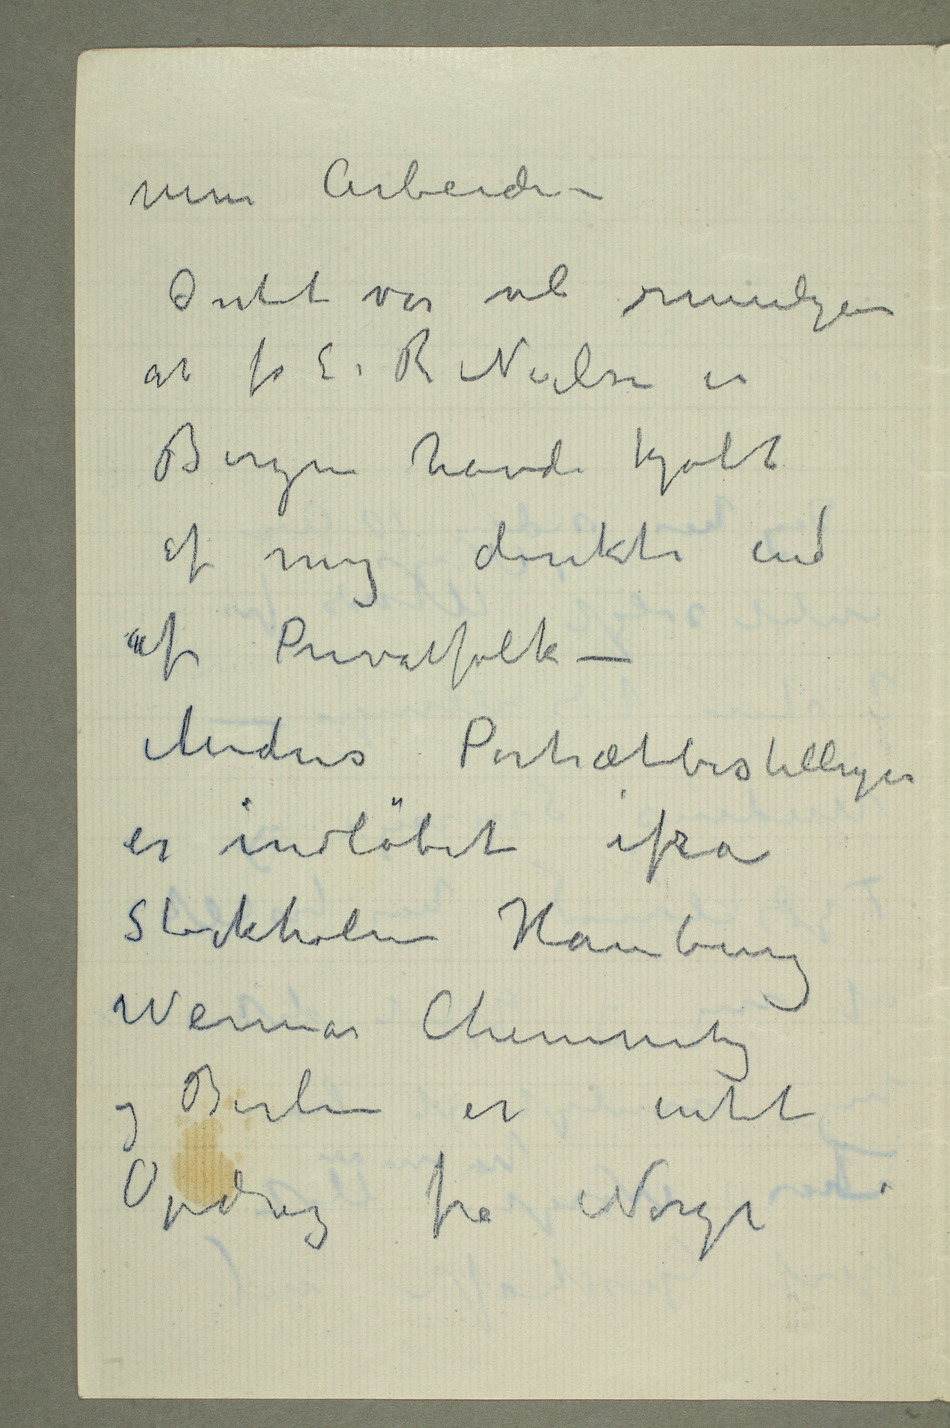 mine Arbeider –
Det var vel rimeligere
at fx E. R Nielsen i
Bergen havde kjøbt
af mig direkte end
af Privatfolk –
Medens Portrætbestillinger
er indløbet ifra
Stockholm Hamburg
Weimar Chemnitz
og Berlin er intet
Opdrag fra Norge